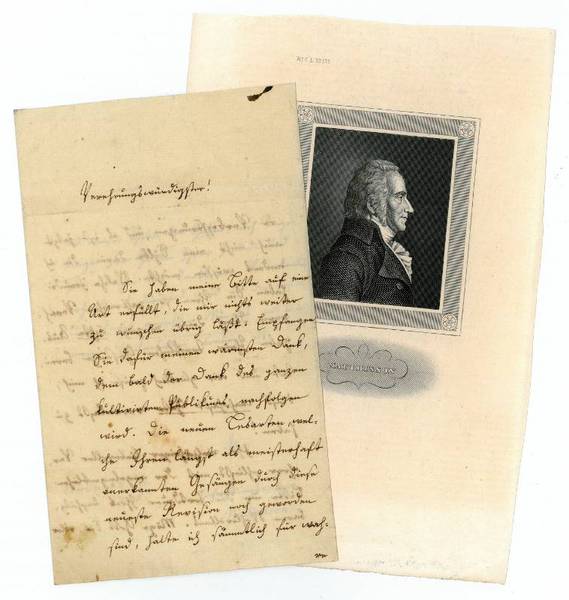 Verehrungswürdigster!
Sie haben meine Bitte auf eine
Art erfüllt, die mir nichts weiter
zu wünschen übrig läßt. Empfangen
Sie dafür meinen wärmsten Dank,
dem bald der Dank des ganzen
kultivirten Publikums nachfolgen
wird. Die neuen Lesarten, wel-
che Ihren längst als meisterhaft
anerkannten Gesängen durch diese
neueste Revision noch geworden
sind, halte ich sämmtlich für wah-
re
MATTHISSON